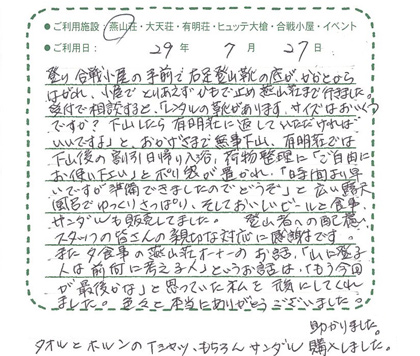 ●ご利用施設 燕山荘・大天荘・有明荘・ヒュッテ大槍・合戦小屋・イベント
●ご利用日: 29年 7月 27日
登り合戦小屋の手前で右足登山靴の底が、かかとから
はがれ、小屋でとりあえずひもで止め燕山荘まで行きました。
受付で相談すると、「レンタルの靴があります。サイズはおいくつ
ですか？下山したら有明荘に返していただければ
いいですよ」と、おかげさまで無事下山、有明荘では
下山後の割引日帰り入浴、荷物整理に「ご自由に
お使い下さい」とポリ袋が置かれ、「時間より早
いですが準備できましたのでどうぞ」と広い露天
風呂でゆっくりさっぱり、そしておいしいビールと食事、
サンダルも販売してました。登山者への配慮、
スタッフの皆さんの親切な対応に感謝です
また夕食事の燕山荘オーナーのお話、「山に登る
人は前向に考える人」というお話は、「もう今回
が最後かな」と思っていた私を 元気にしてくれ
ました。色々と本当にありがとうございました。
助かりました。
タオルとホルンのTシャツ、もちろんサンダル購入しました。